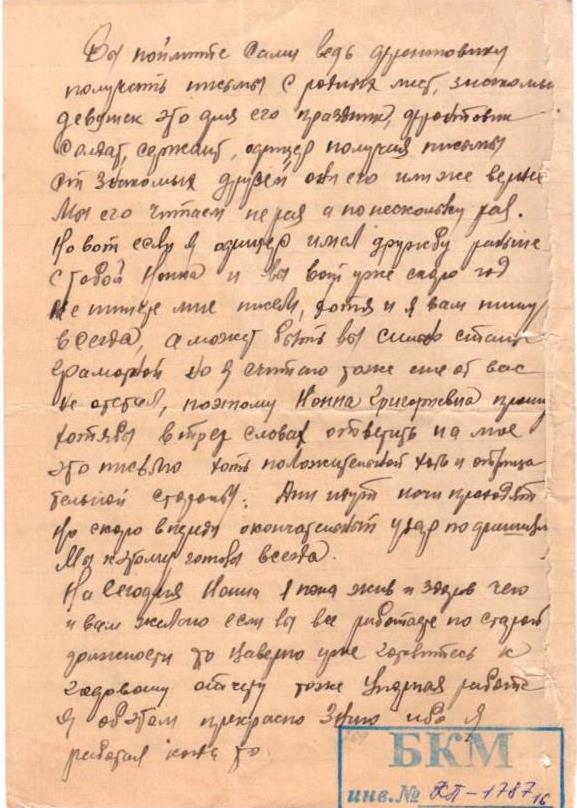 Вы поймите сами ведь фронтовику
получать письмы с родных мест, знакомых
девушек это для его праздник, фронтовик
солдат, сержант, офицер получая письмы
от знакомых друзей он его или же вернее
Мы его читаем не раз а по нескольку раз.
Но вот если я офицер имел дружбу раньше
с тобой Нонна и вы вот уже скоро год
не пишете мне писем, хотя и я вам пишу
всегда, а может быть вы сильно стали
грамотной но я считаю тоже еще от вас
не отстал, поэтому Нонна Григорьевна прошу
хотябы в трех словах ответить на мое
это письмо хоть положительной хоть и отрица
тельной стороны. Дни идут ночи проходят
но скоро впереди окончательный удар по
Мы к этому готовы всегда.
На сегодня Нонна я пока жив и здоров чего
и вам желаю если вы все работаете по старой
должности то наверно уже готовитесь к
годовому отчету тоже упорная работа
я об этом прекрасно знаю ибо я
работал когда то
БКМ
инв.№ КП-1787/16